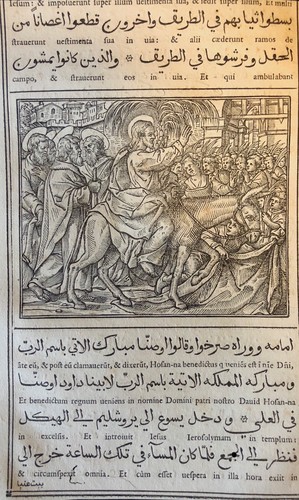 Iesum: & imposuerunt super illum vestimenta sua, & sedit super illum. Et multi
بسطوا ثيابهم في الطريق واخرون قطعوا اغصانا من
strauerunt uestimenta sua in uia: & alii cæderunt ramos de
الحقل وفرشوها في الطريق * والذين كانوا يمشون
campo, & strauerunt eos in uia. Et qui ambulabant
امامه ووراه صرخوا وقالوا اوصنا مبارك الاتي باسم الرب
ante eū, & post eū clamauerūt, & dixerūt, Hosan-na benedictus q ueniēs est ī nīe Dñi,
ومباركه المملكه الاتية باسم الرب لابينا داود اوصنا
Et benedictum regnum ueniens in nomine Domini patri nostro Dauid Hosan-na
في العلي * ودخل يسوع الي يروشليم الي الهيكل
in excelsis. Et introiuit Iesus Ierosolymam in templum:
فنظر الي الجمع فلما كان المسا في تلك الساعة خرج الي
& circumspexit omnia. Et cùm esset uespera in illa hora exiit in
بيت عنيا